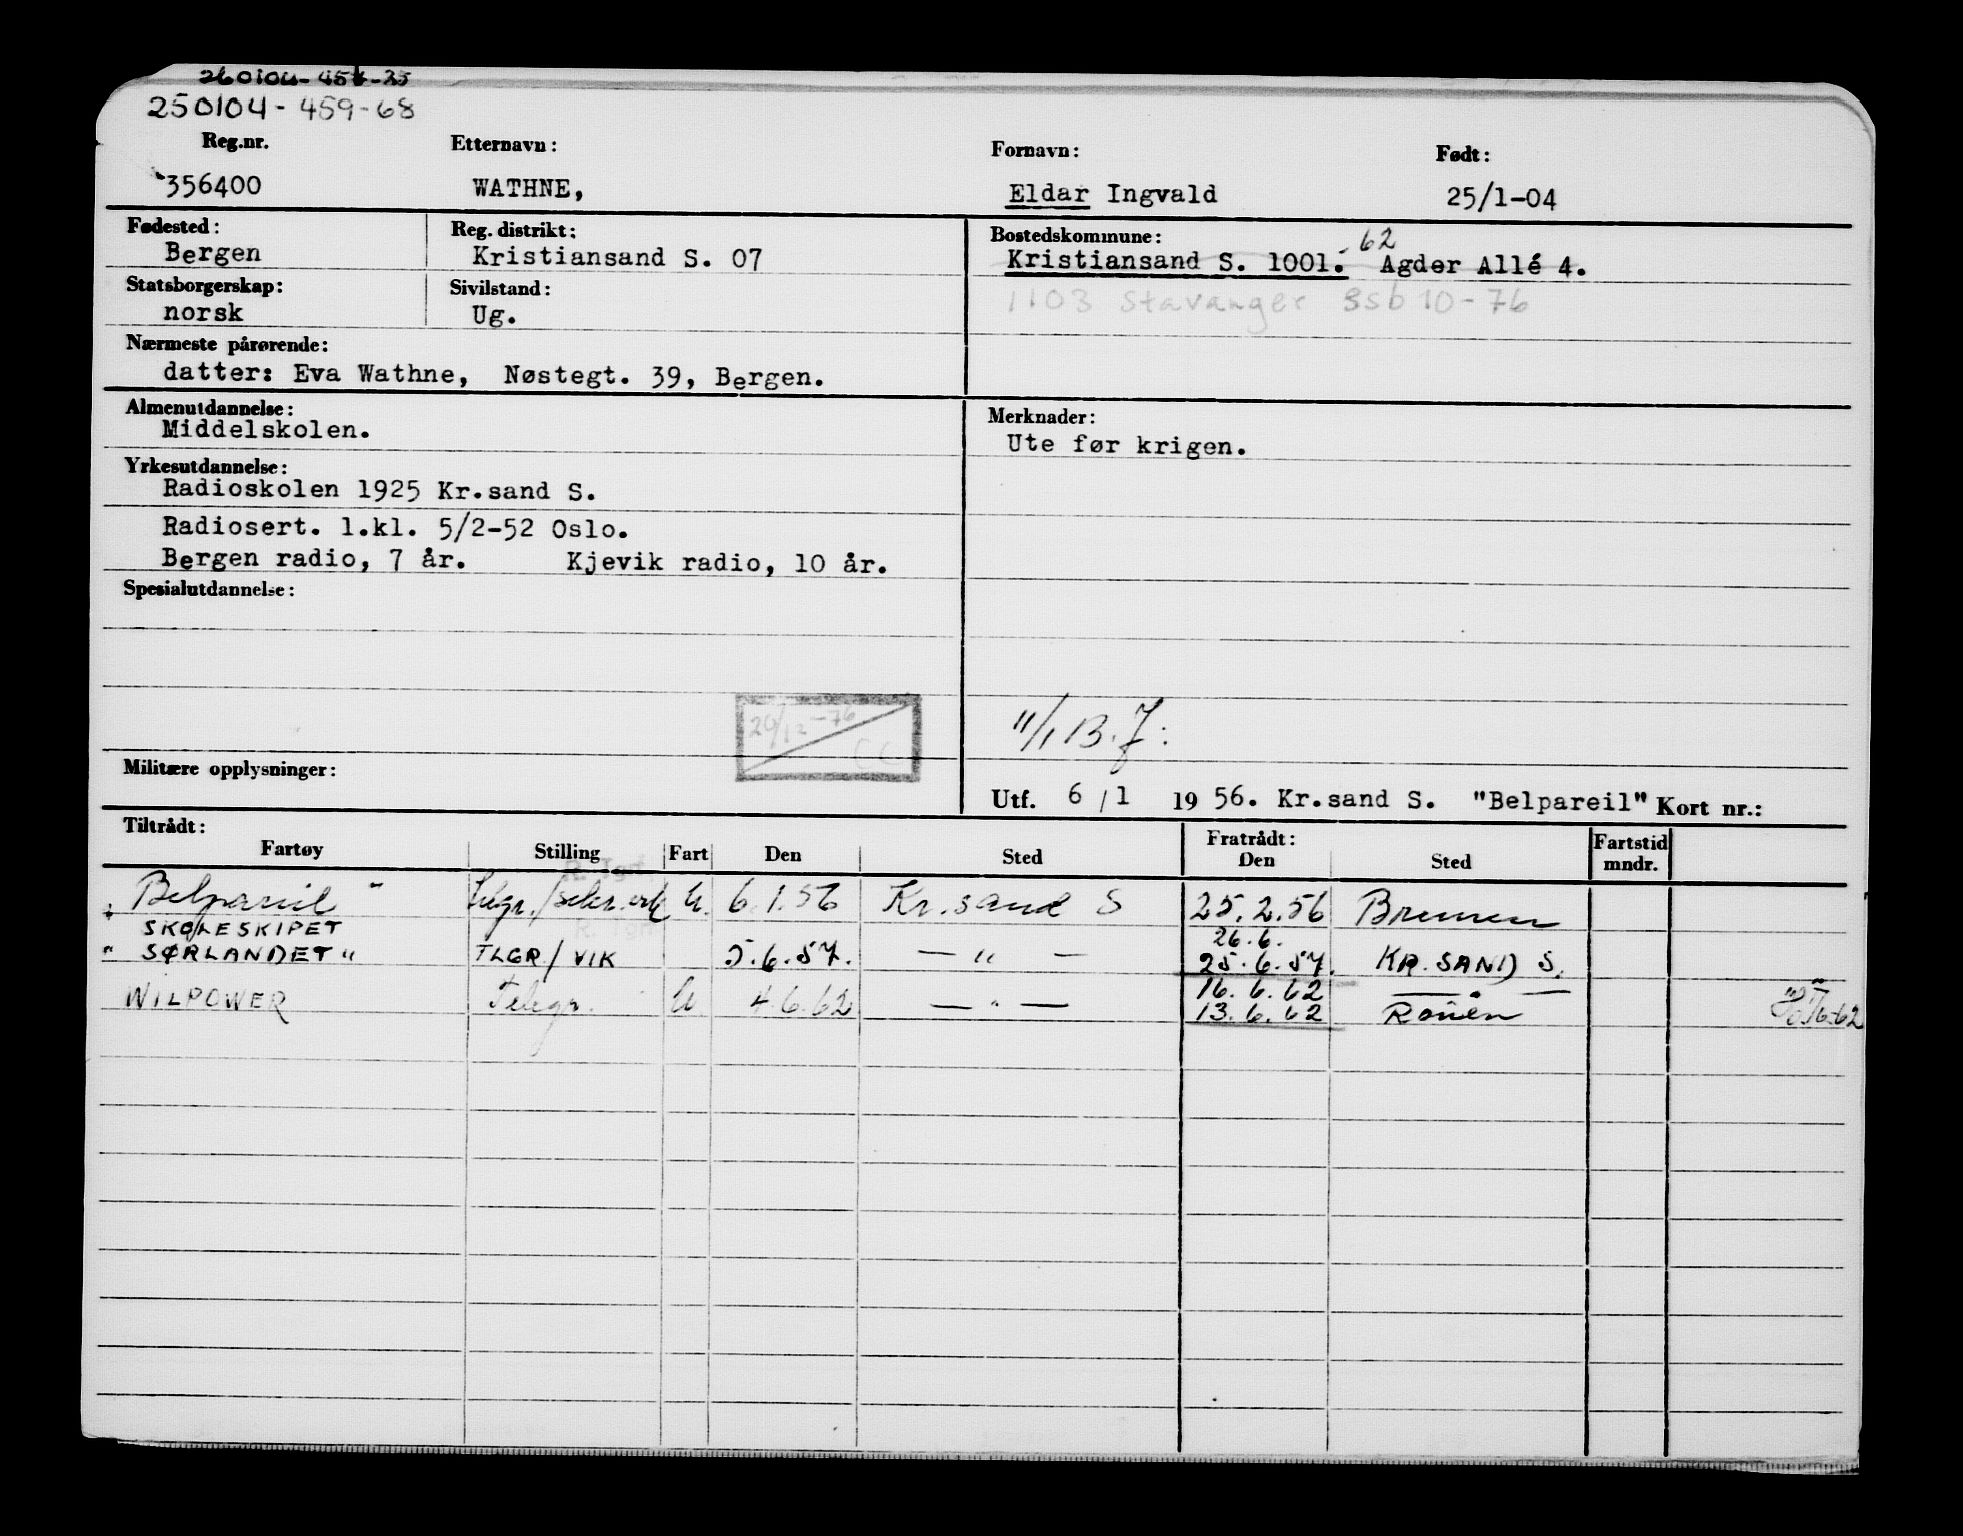 250104-459-68
Reg.nr. Etternavn: Fornavn: Født:
356400 WATHNE, Eldar Ingvald 25/1-04
Fødested: Reg. distrikt: Bostedskommune:
Bergen Kristiansand S. 07 Kristiansand S. 1001. 62 Agder Allé 4.
Statsborgerskap: Sivilstand: 1103 Stavanger Ssb 10-76
norsk Ug.
Nærmeste pårørende:
datter: Eva Wathne, Nøstegt. 39, Bergen.
Almenutdannelse: Merknader:
Middelskolen. Ute før krigen.
Yrkesutdannelse:
Radioskolen 1925 Kr.sand S.
Radiosert. 1.kl. 5/2-52 Oslo.
Bergen radio, 7 år. Kjevik radio, 10 år.
Spesialutdannelse:
-76
CC
11/1 B.J:
Militære opplysninger:
Utf. 6/1 1956. Kr.sand S. "Belpareil" Kort nr.:
Tiltrådt: Fratrådt: Fartstid
Fartøy Stilling Fart Den Sted Den Sted mndr.
"Belpareil" U. 6.1.56 Kr.sand S 25.2.56 Bremen
SKOLESKIPET 26.6.
"SØRLANDET" TLGR/VIK 5.6.57. — " — 25.6.57. KR.SAND S.
WILPOWER Telegr. U 4.6.62 — " — 16.6.62 — " —
13.6.62 Rouen